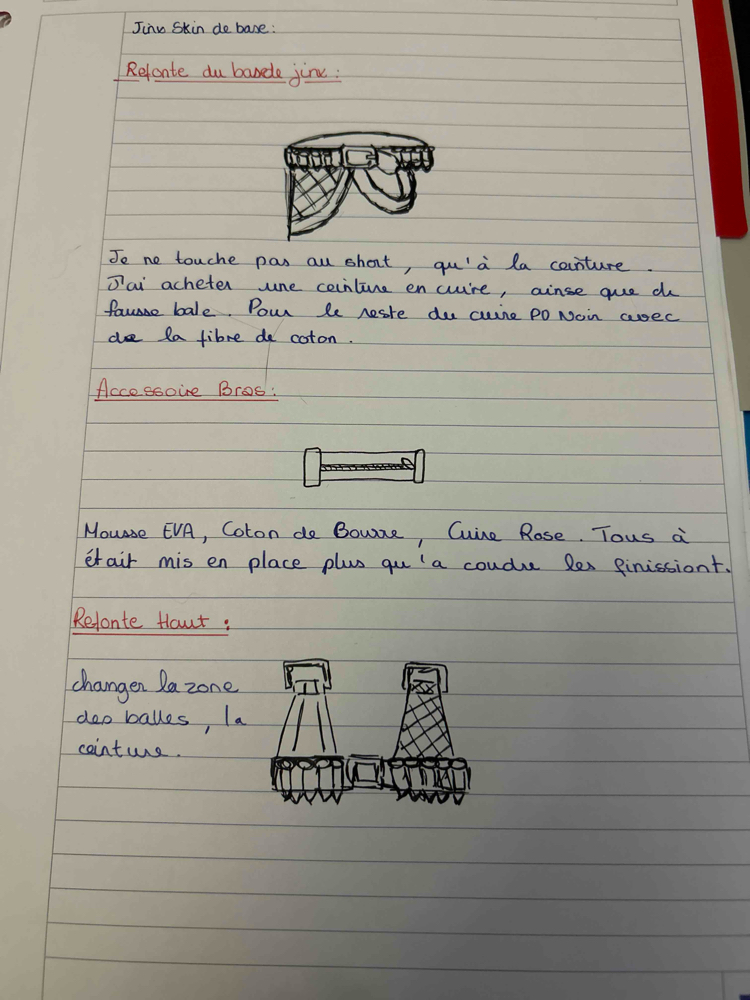 Jinx Skin de base :
Refonte du bas de jinx :
Je ne touche pas au short, qu'à la ceinture.
J'ai acheter une ceinture en cuire, ainse que de
fausse bale. Pour le reste du cuire PO Noir avec
de la fibre de coton.
Accessoire Bras :
Mousse EVA, Coton de Bourre, Cuire Rose. Tous à
était mis en place plus qu'a coudre les finissiont.
Refonte Haut :
changer la zone
des balles, la
ceinture.